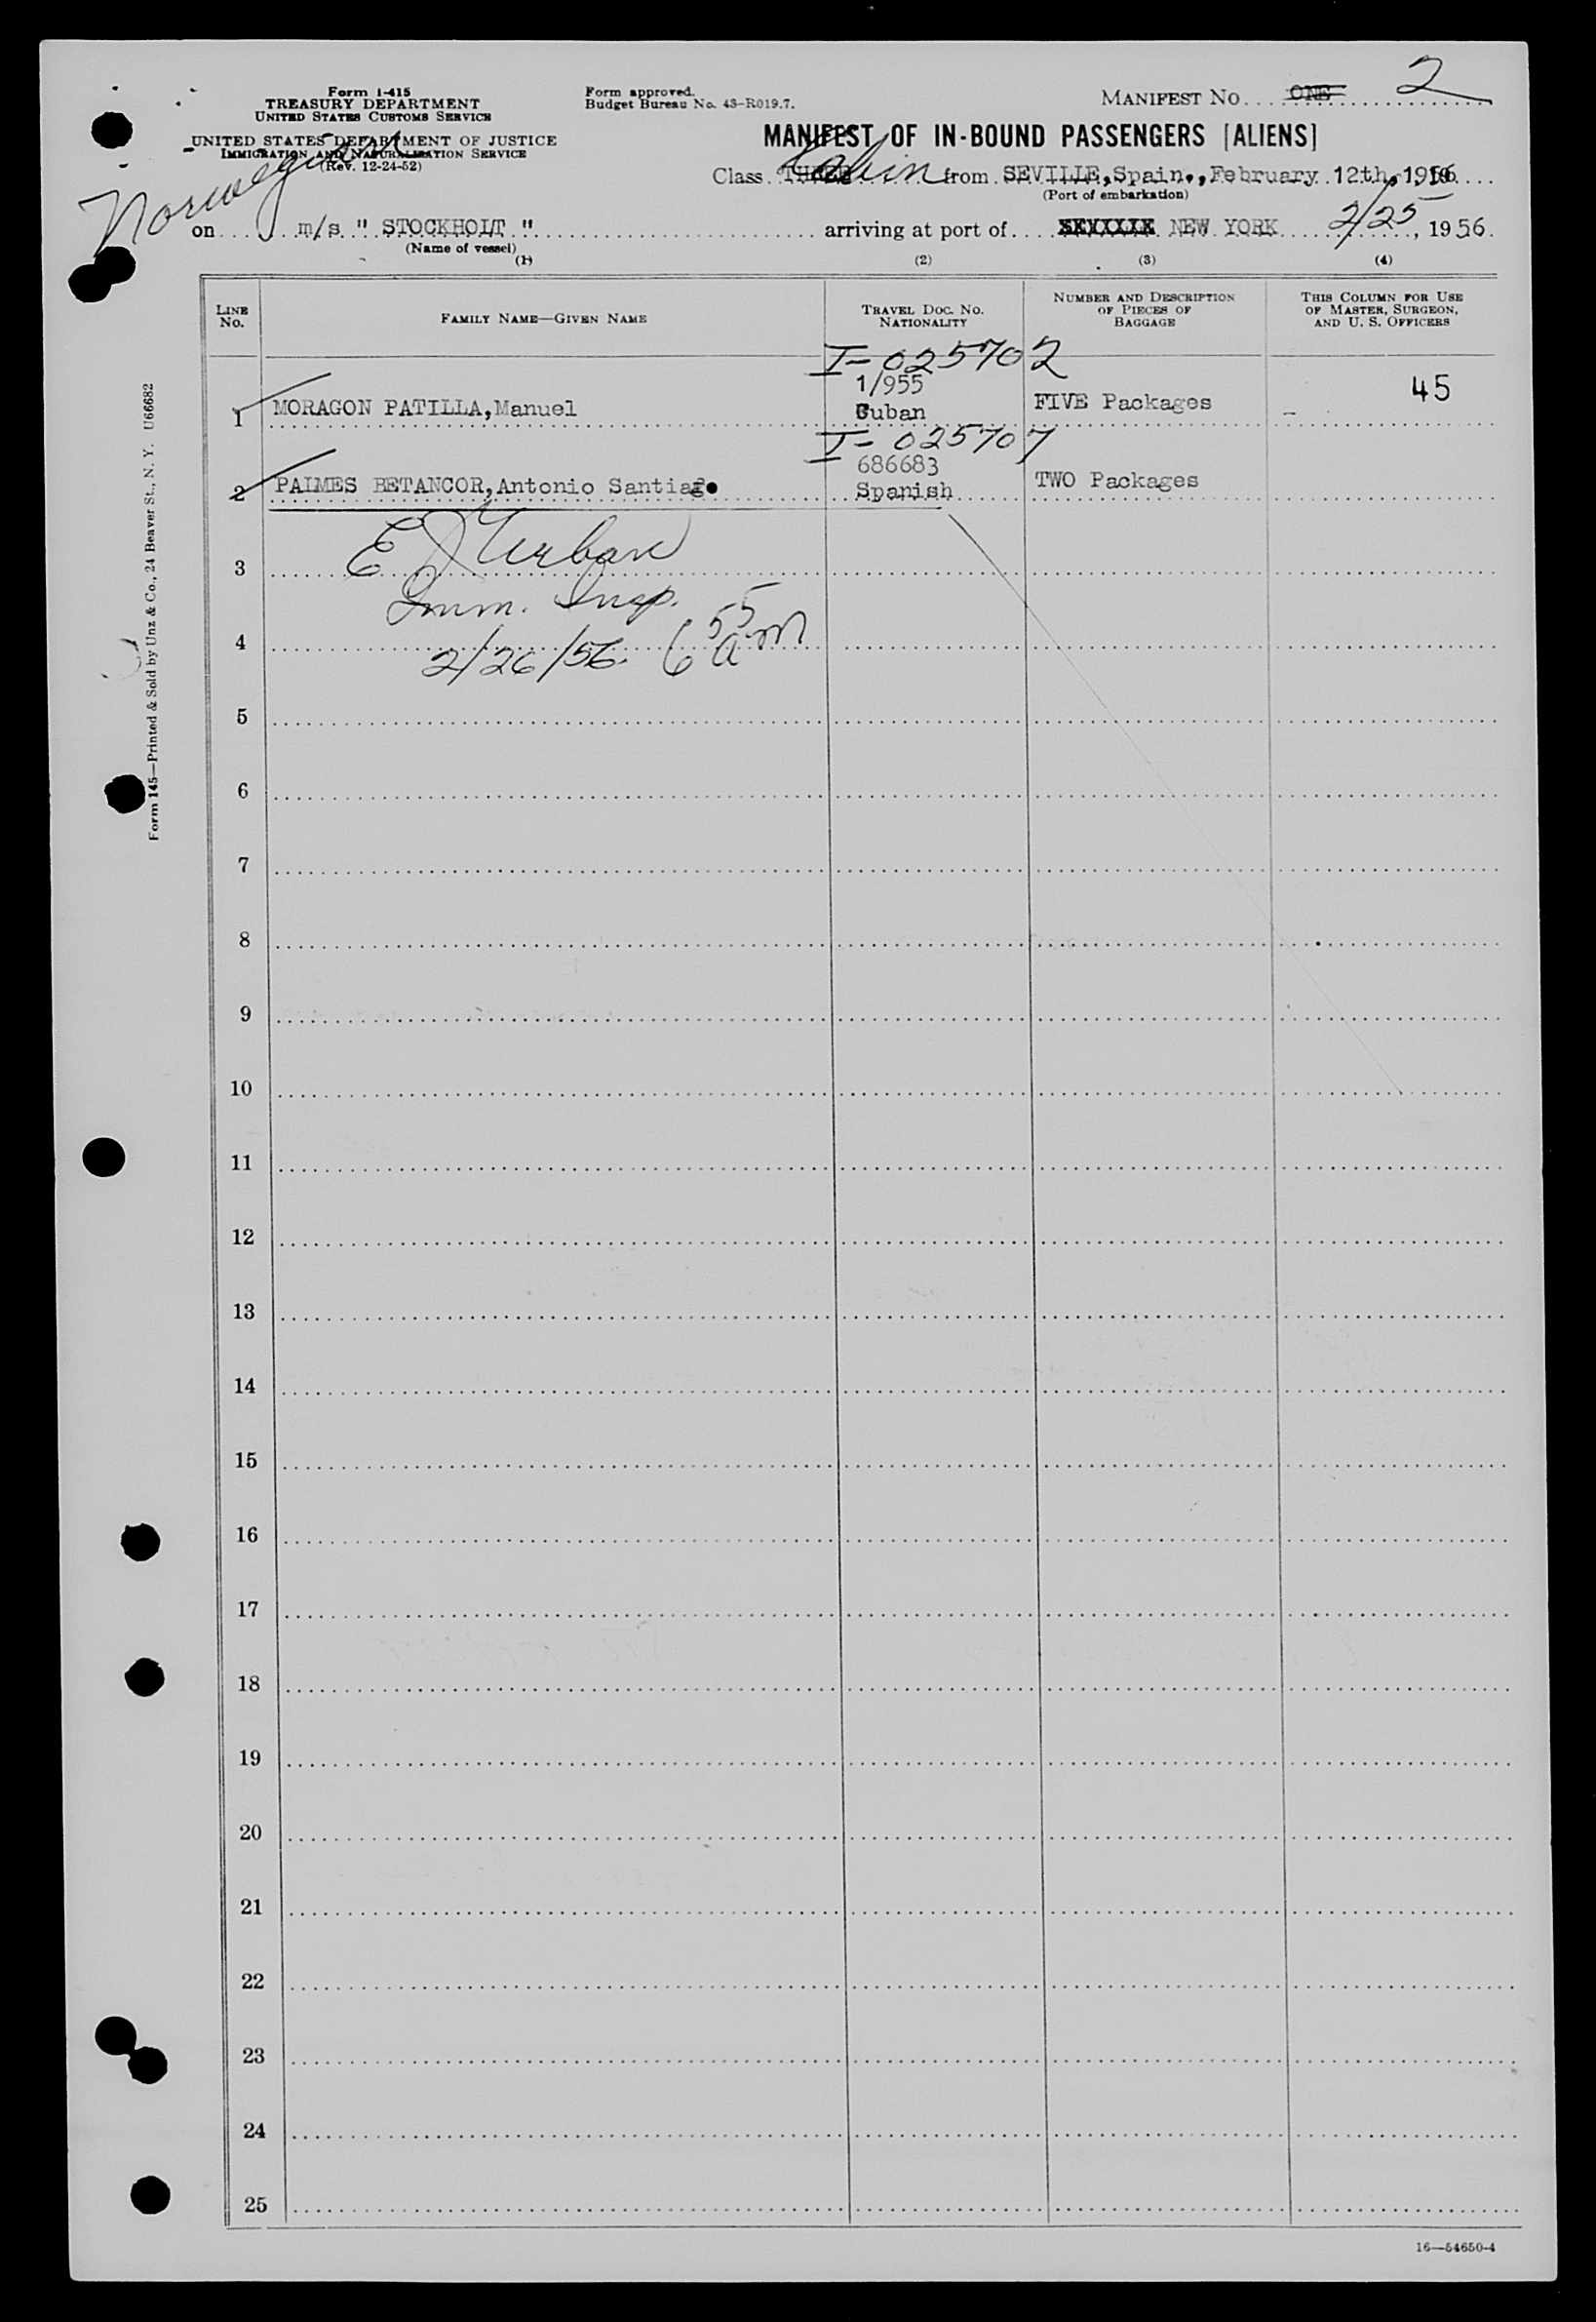 Form I-415
TREASURY DEPARTMENT
UNITED STATES CUSTOMS SERVICE
UNITED STATES DEPARTMENT OF JUSTICE
IMMIGRATION AND NATURALIZATION SERVICE
(Rev. 12-24-52)
Norwegian
Form approved.
Budget Bureau No. 43-R019.7.
MANIFEST NO. ONE 2
MANIFEST OF IN-BOUND PASSENGERS [ALIENS]
Class Cabin from SEVILLE, Spain., February 12th, 1956
(Port of embarkation)
on m/s " STOCKHOLT " arriving at port of SEVILLE NEW YORK 2/25, 1956.
(Name of vessel)
(1) (2) (3) (4)
LINE NO.
FAMILY NAME—GIVEN NAME
TRAVEL DOC. NO. NATIONALITY
NUMBER AND DESCRIPTION OF PIECES OF BAGGAGE
THIS COLUMN FOR USE OF MASTER, SURGEON, AND U. S. OFFICERS
I-025702
1/955
1 MORAGON PATILLA, Manuel Cuban FIVE Packages 45
I-025707
686683
2 PALMES BETANCOR, Antonio Santiago Spanish TWO Packages
3 E J Urban
Imm. Insp.
4 2/26/56. 6 55 am
5
6
7
8
9
10
11
12
13
14
15
16
17
18
19
20
21
22
23
24
25
Form 145—Printed & Sold by Unz & Co., 24 Beaver St., N. Y. U66682
16—54650-4